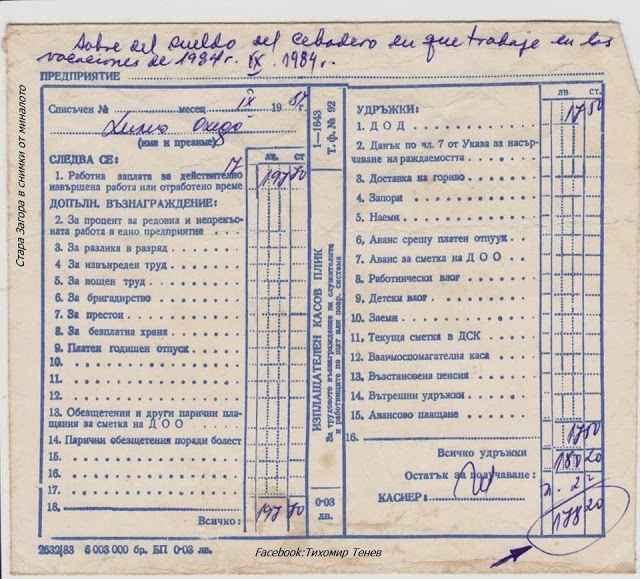 Sobre del sueldo del cebadero en que trabaje en las
vacaciones de 1984 г. IX. 1984 г.
ПРЕДПРИЯТИЕ
Списъчен № месец IX 1984 г.
(име и презиме)
СЛЕДВА СЕ:
лв. ст
1. Работна заплата за действително
извършена работа или отработено време
17 197 70
ДОПЪЛН. ВЪЗНАГРАЖДЕНИЕ:
2. За процент за редовна и непрекъс-
ната работа в едно предприятие
3. За разлика в разряд
4. За извънреден труд
5. За нощен труд
6. За бригадирство
7. За престои
8. За безплатна храна
9. Платен годишен отпуск
10.
11.
12.
13. Обезщетения и други парични пла-
щания за сметка на ДОО
14. Парични обезщетения поради болест
15.
16.
17.
18.
Всичко: 197 70
2632/83 6 003 000 бр. БП 0·03 лв.
1—1643
Т. ф. № 92
ИЗПЛАЩАТЕЛЕН КАСОВ ПЛИК
За трудовото възнаграждение на служителите
и работниците по щат или повр. система
0·03
лв.
УДРЪЖКИ:
лв. ст.
1. ДОД 17 50
2. Данък по чл. 7 от Указа за насър-
чаване на раждаемостта
3. Доставка на гориво
4. Запори
5. Наеми
6. Аванс срещу платен отпуск
7. Аванс за сметка на ДОО
8. Работнически влог
9. Детски влог
10. Заеми
11. Текуща сметка в ДСК
12. Взаимоспомагателна каса
13. Възстановена пенсия
14. Вътрешни удръжки
15. Авансово плащане
16.
Всичко удръжки 17 50
Остатък за получаване: 180 20
КАСИЕР:
178 20
Стара Загора в снимки от миналото
Facebook:Тихомир Тенев